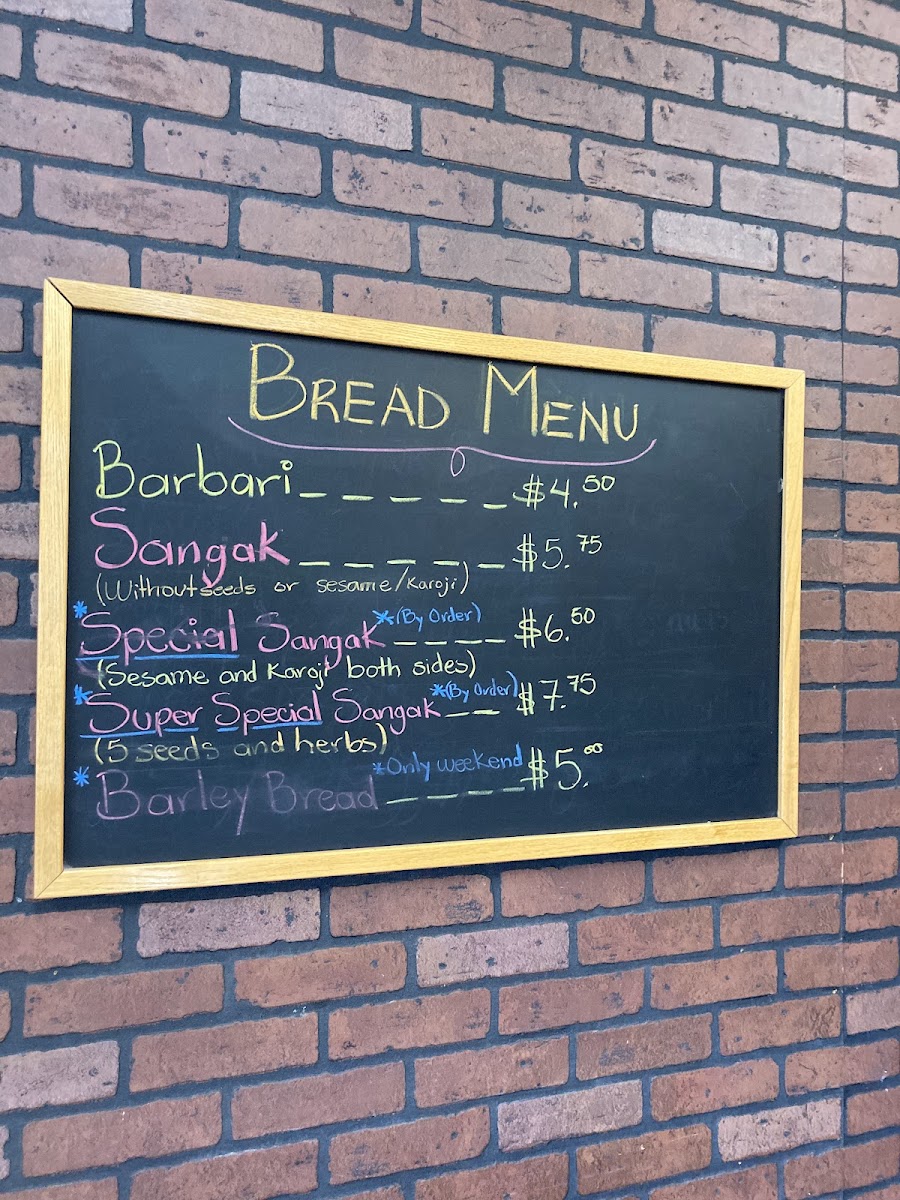 BREAD MENU
Barbari _ _ _ _ _ $4.50
Sangak _ _ _ _ _ $5.75
(Without seeds or sesame/Karoji)
*Special Sangak *(By Order) _ _ _ _ $6.50
(Sesame and Karoji both sides)
*Super Special Sangak *(By Order) _ _ $7.75
(5 seeds and herbs)
*Barley Bread *Only weekend _ _ _ _ $5.00